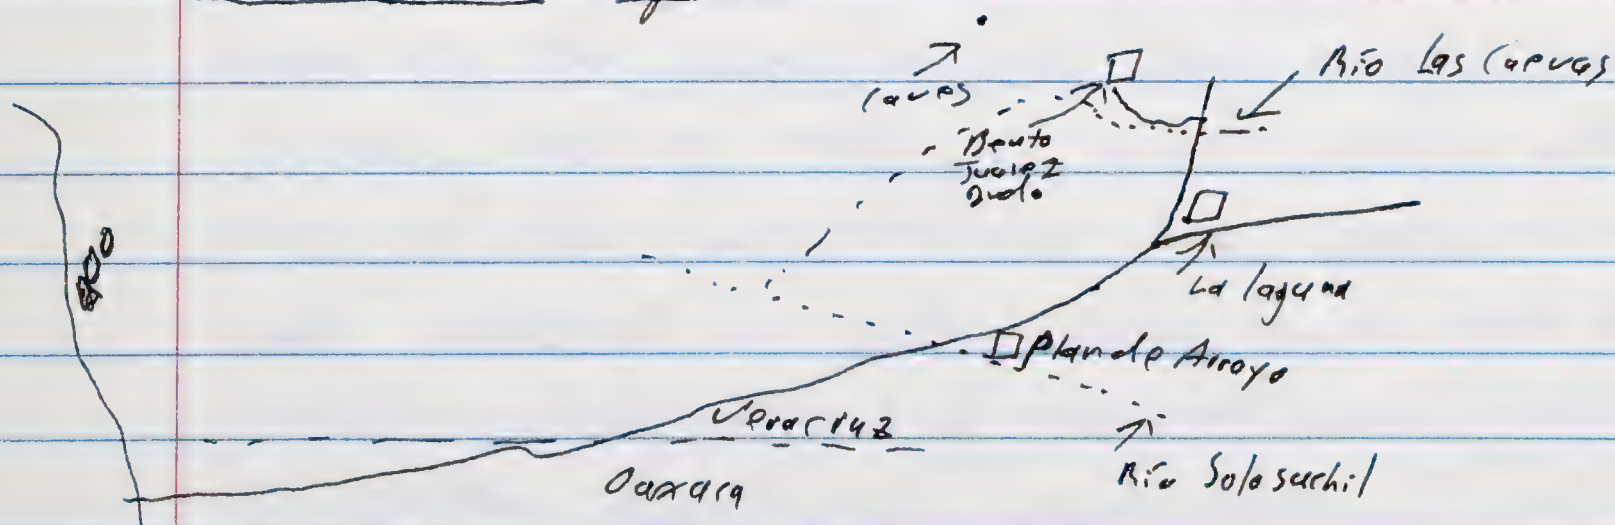 Río Las Cuevas
Caves
Benito
Juarez
La laguna
Plan de Arroyo
Veracruz
Oaxaca
Río Solosuchil